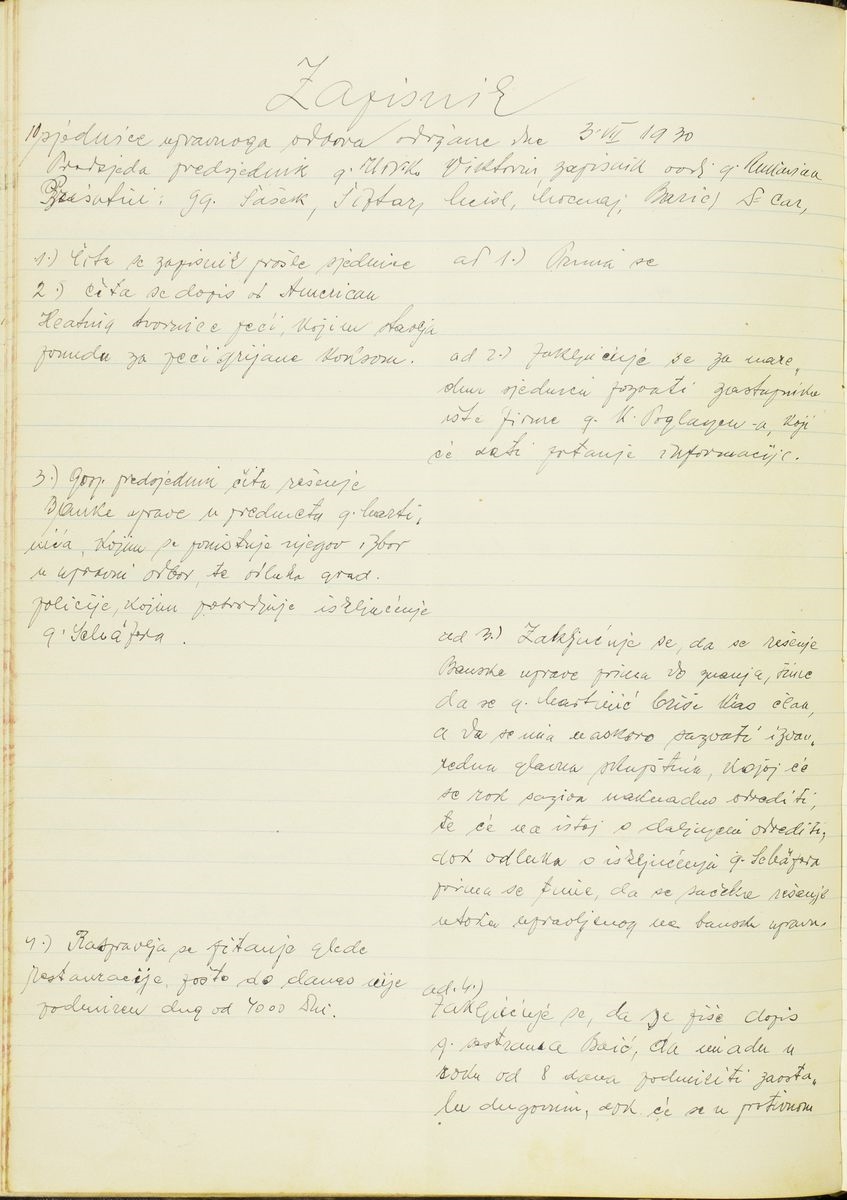 Zapisnik
10 sjednice upravnoga odbora održane dne 3. VII 1930
Predsjeda predsjednik g. Mirko Viktorin, zapisnik vodi g.
Prisutni: gg. Šašek, Šoštar, Meisl, Mocenaj, Barić, Dr Car,
1.) Čita se zapisnik prošle sjednice
ad 1.) Prima se
2.) Čita se dopis od American
Heating tvornice peći, kojim stavlja
ponudu za peći grijane koksom.
ad 2.) Zaključuje se za nare-
dnu sjednicu pozvati zastupnika
iste firme g. K. Poglayen-a, koji
će dati potanje informacije.
3.) Gosp. predsjednik čita rešenje
Banske uprave u predmetu g. Marti-
nića, kojim se poništuje njegov izbor
u upravni odbor, te odluka grad.
policije, kojim potvrdjuje isključenje
g. Schäfera.
ad 3.) Zaključuje se, da se rešenje
Banske uprave prima do znanja, time
da se g. Martinić briše kao član,
a da se ima naskoro sazvati izvan-
redna glavna skupština, kojoj će
se rok saziva naknadno odrediti,
te će na istoj o daljnjem odrediti,
dok odluka o isključenju g. Schäfera
prima se time, da se sačeka rešenje
utoka upravljenog na bansku upravu.
4.) Raspravlja se pitanje glede
restauracije, pošto do danas nije
podmiren dug od 4000 Din.
ad. 4.)
Zaključuje se, da se piše dopis
g. Baić, da imadu u
roku od 8 dana podmiriti zaosta-
lu dugovinu, dok će se u protivnom